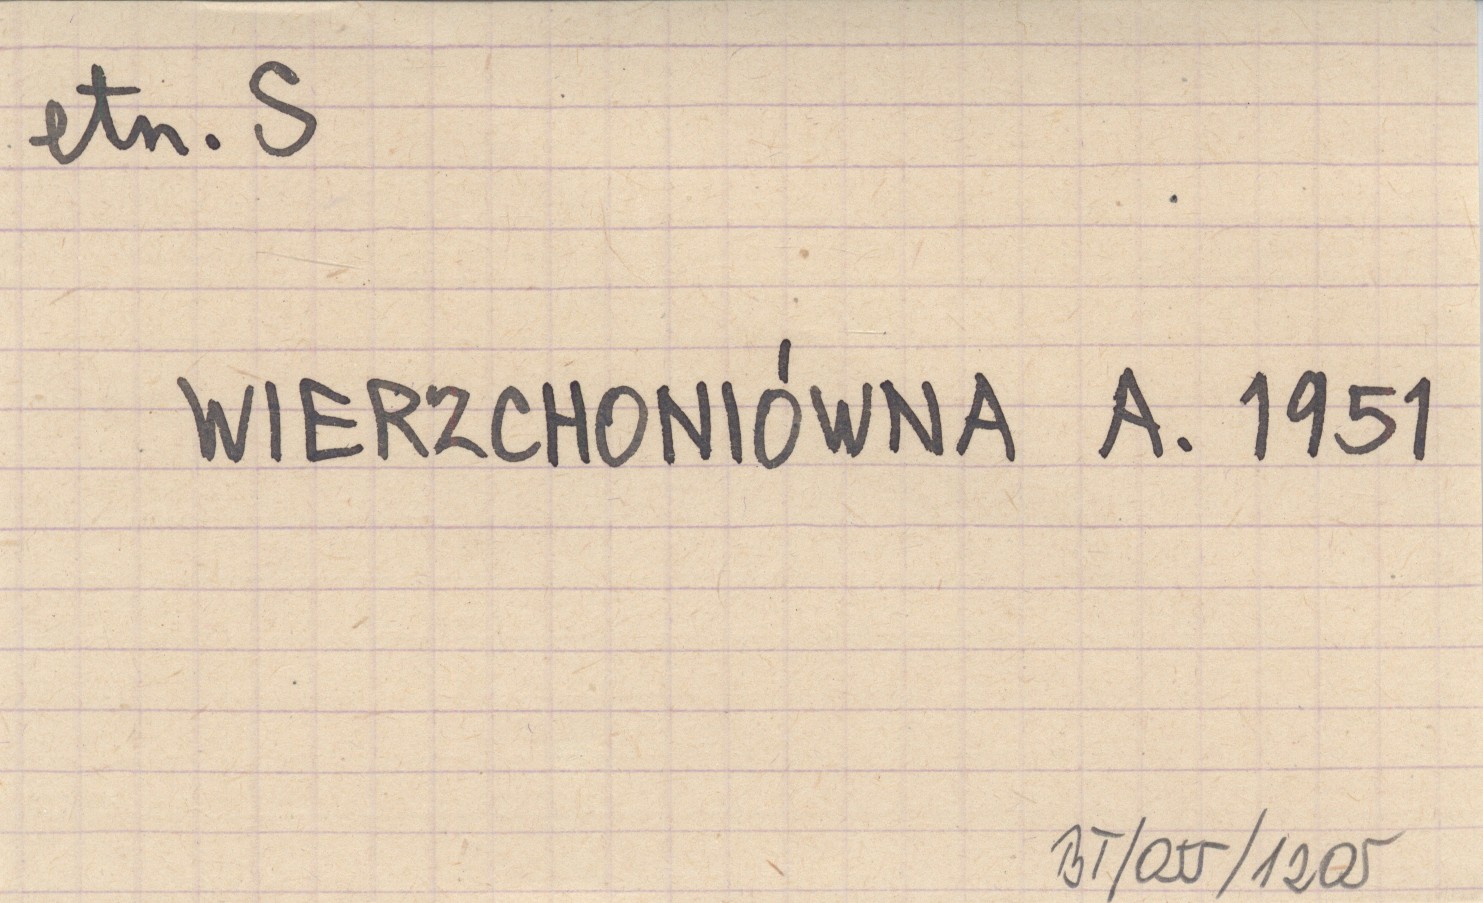 etn. S
WIERZCHONIÓWNA A. 1951
BT/055/1205